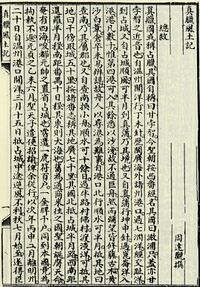 真臘風土記
周達觀撰
總敘
真臘國或稱占臘其國自稱曰甘孛智今聖朝按西番經名其國曰澉浦只蓋亦甘
孛智之近音也自溫州開洋行丁未針歷閩廣海外諸州港口過七洲洋經交趾洋
到占城又自占城順風可半月到真蒲乃其境也又自真蒲行坤申針過崑崙洋入
港港凡數十惟第四港可入其餘悉以沙淺故不通巨舟然而彌望皆修藤古木黃
沙白葦倉卒未易辨認故舟人以尋港為難事自港口北行順水可半月抵其地曰
查南乃其屬郡也又自查南換小舟順水可十餘日過半路村佛村渡淡洋可抵其
地曰干傍取城五十里按諸番志稱其地廣七千里其國北抵占城半月路西南距
暹羅半月程南距番禺十日程其東則大海也舊為通商來往之國聖朝誕膺天命
奄有四海唆都元帥之置省占城也嘗遣一虎符百戶一金牌千戶同到本國竟為
拘執不返元貞之乙未六月聖天子遣使招諭俾余從行以次年丙申二月離明州
二十日自溫州港口開洋三月十五日抵占城中途逆風不利秋七月始至遂得臣